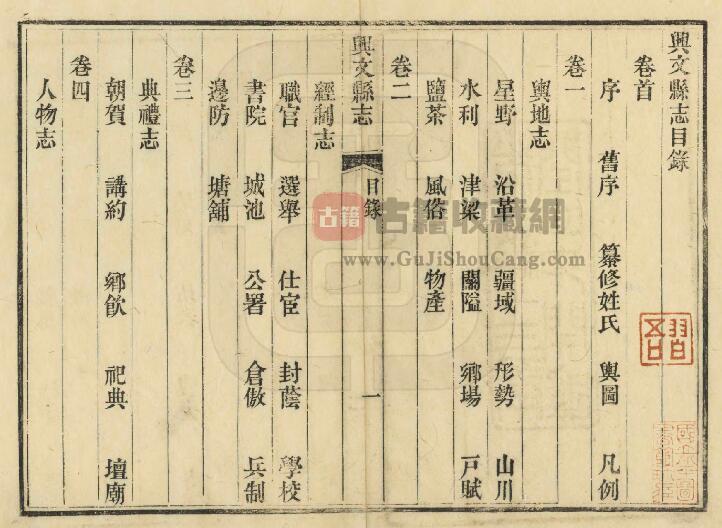 興文縣志目錄
卷首
序 舊序 纂修姓氏 輿圖 凡例
卷一
輿地志
星野 沿革 疆域 形勢 山川
水利 津梁 關隘 鄉場 戸賦
鹽茶 風俗 物產
卷二
興文縣志 目錄 一
經制志
職官 選舉 仕宦 封蔭 學校
書院 城池 公署 倉厫 兵制
邊防 塘鋪
卷三
典禮志
朝賀 講約 鄉飲 祀典 壇廟
卷四
人物志
古籍 古籍收藏網
www.GuJiShouCang.com